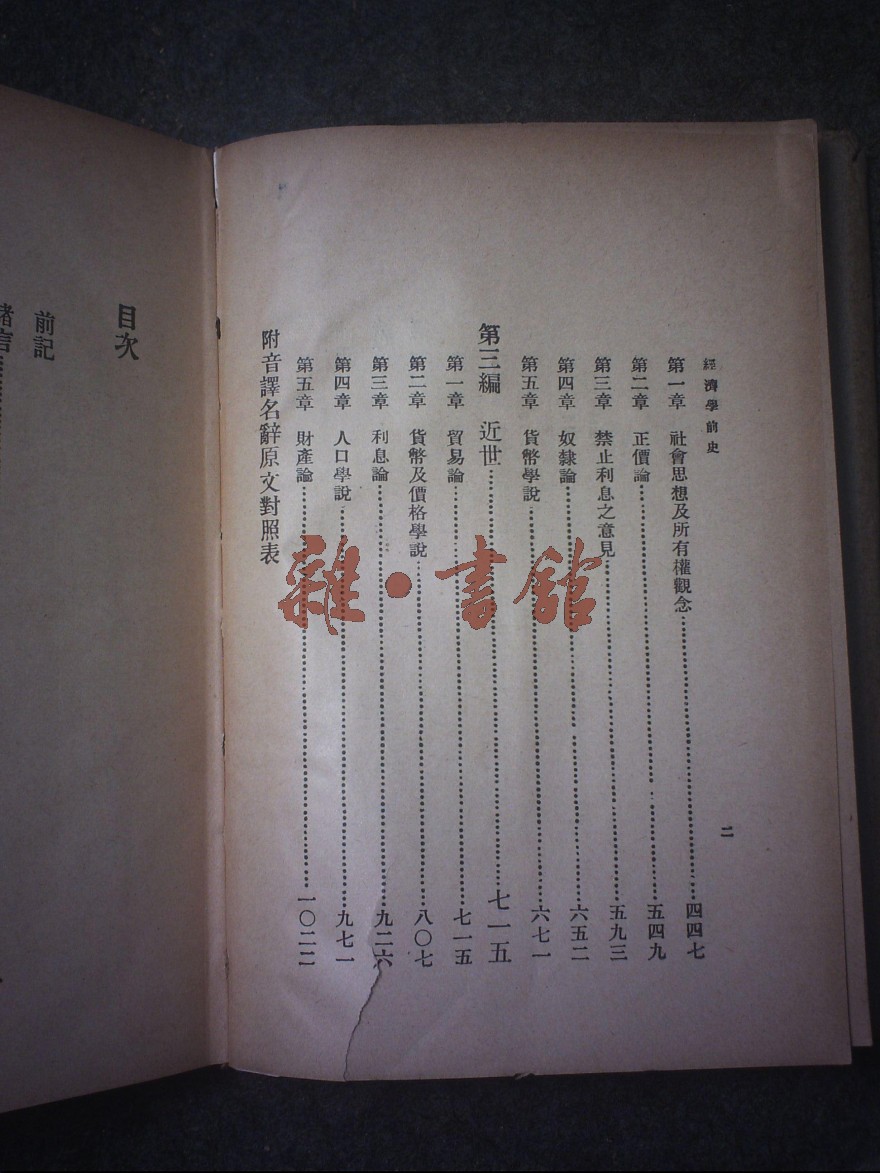 經濟學前史
二
第一章 社會思想及所有權觀念……四四七
第二章 正價論……五四九
第三章 禁止利息之意見……五九三
第四章 奴隸論……六五二
第五章 貨幣學說……六七一
第三編 近世……七一五
第一章 貿易論……七一五
第二章 貨幣及價格學說……八〇七
第三章 利息論……九二六
第四章 人口學說……九七一
第五章 財產論……一〇二二
附音譯名辭原文對照表
目次
前記
緒言
雜·書館